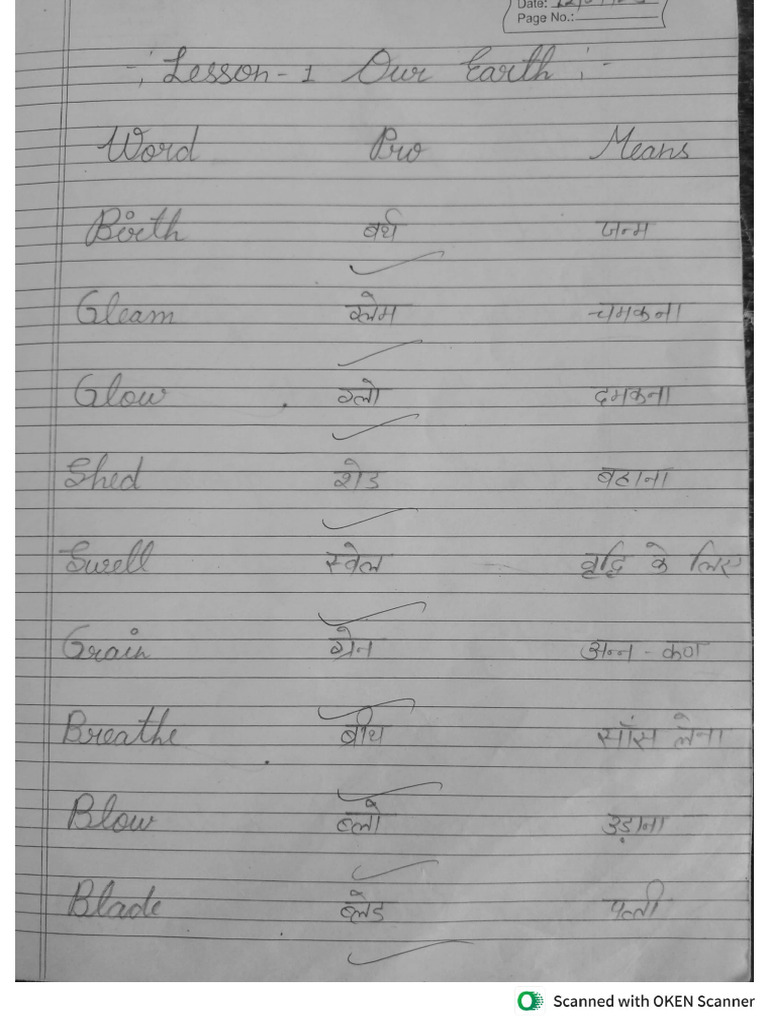 Date:
Page No.:
-: Lesson - 1 Our Earth :-
Word Pro Means
Birth बर्थ जन्म
Gleam ग्लेम चमकना
Glow ग्लो दमकना
Shed शेड बहाना
Swell स्वेल वृद्धि के लिए
Grain ग्रेन अन्न - कण
Breathe ब्रीथ साँस लेना
Blow ब्लो उड़ाना
Blade ब्लेड पत्ती
Scanned with OKEN Scanner